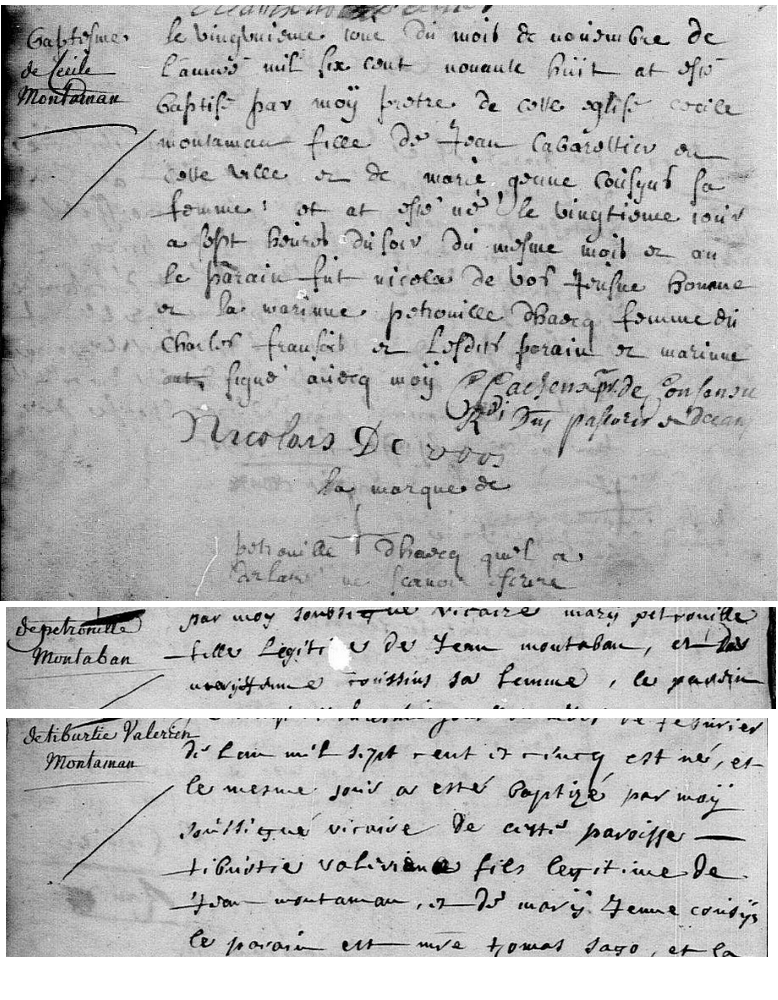 Baptesme
de Cecile
Montaman
le vingunieme iour du mois de nouembre de
l'année mil six cent nonante huit at esté
baptisé par moÿ pretre de cette eglise cecile
montaman fille de Jean Cabarettier en
cette ville et de marie genne Cousyns sa
femme et at esté né le vingtieme iour
a sept heures du soir du mesme mois et an
le parain fut nicola de vos Jeusne homme
et la marinne petronille dhaecq femme du
Charles fransois et Lesdits parain et marinne
ont signé auecq moÿ
pastoris
Nicolais De voos
la marque de
petronille dhaecq quel a
declaré ne scauoir escrire
de petronille
Montaban
par moy soubsigné vicaire mary petronille
fille Légitime de Jean montaban, et de
coussins sa femme, le parain
de tiburtie Valerien
Montaman
de febvrier
de Lan mil sept cent et cincq est né, et
le mesme jour a esté baptizé par moÿ
soussigné vicaire de cette paroisse
tiburtie valeriene fils legitime de
Jean montaman, et de marÿ Jenne cousÿs
le parain est mre tomas sago, et la